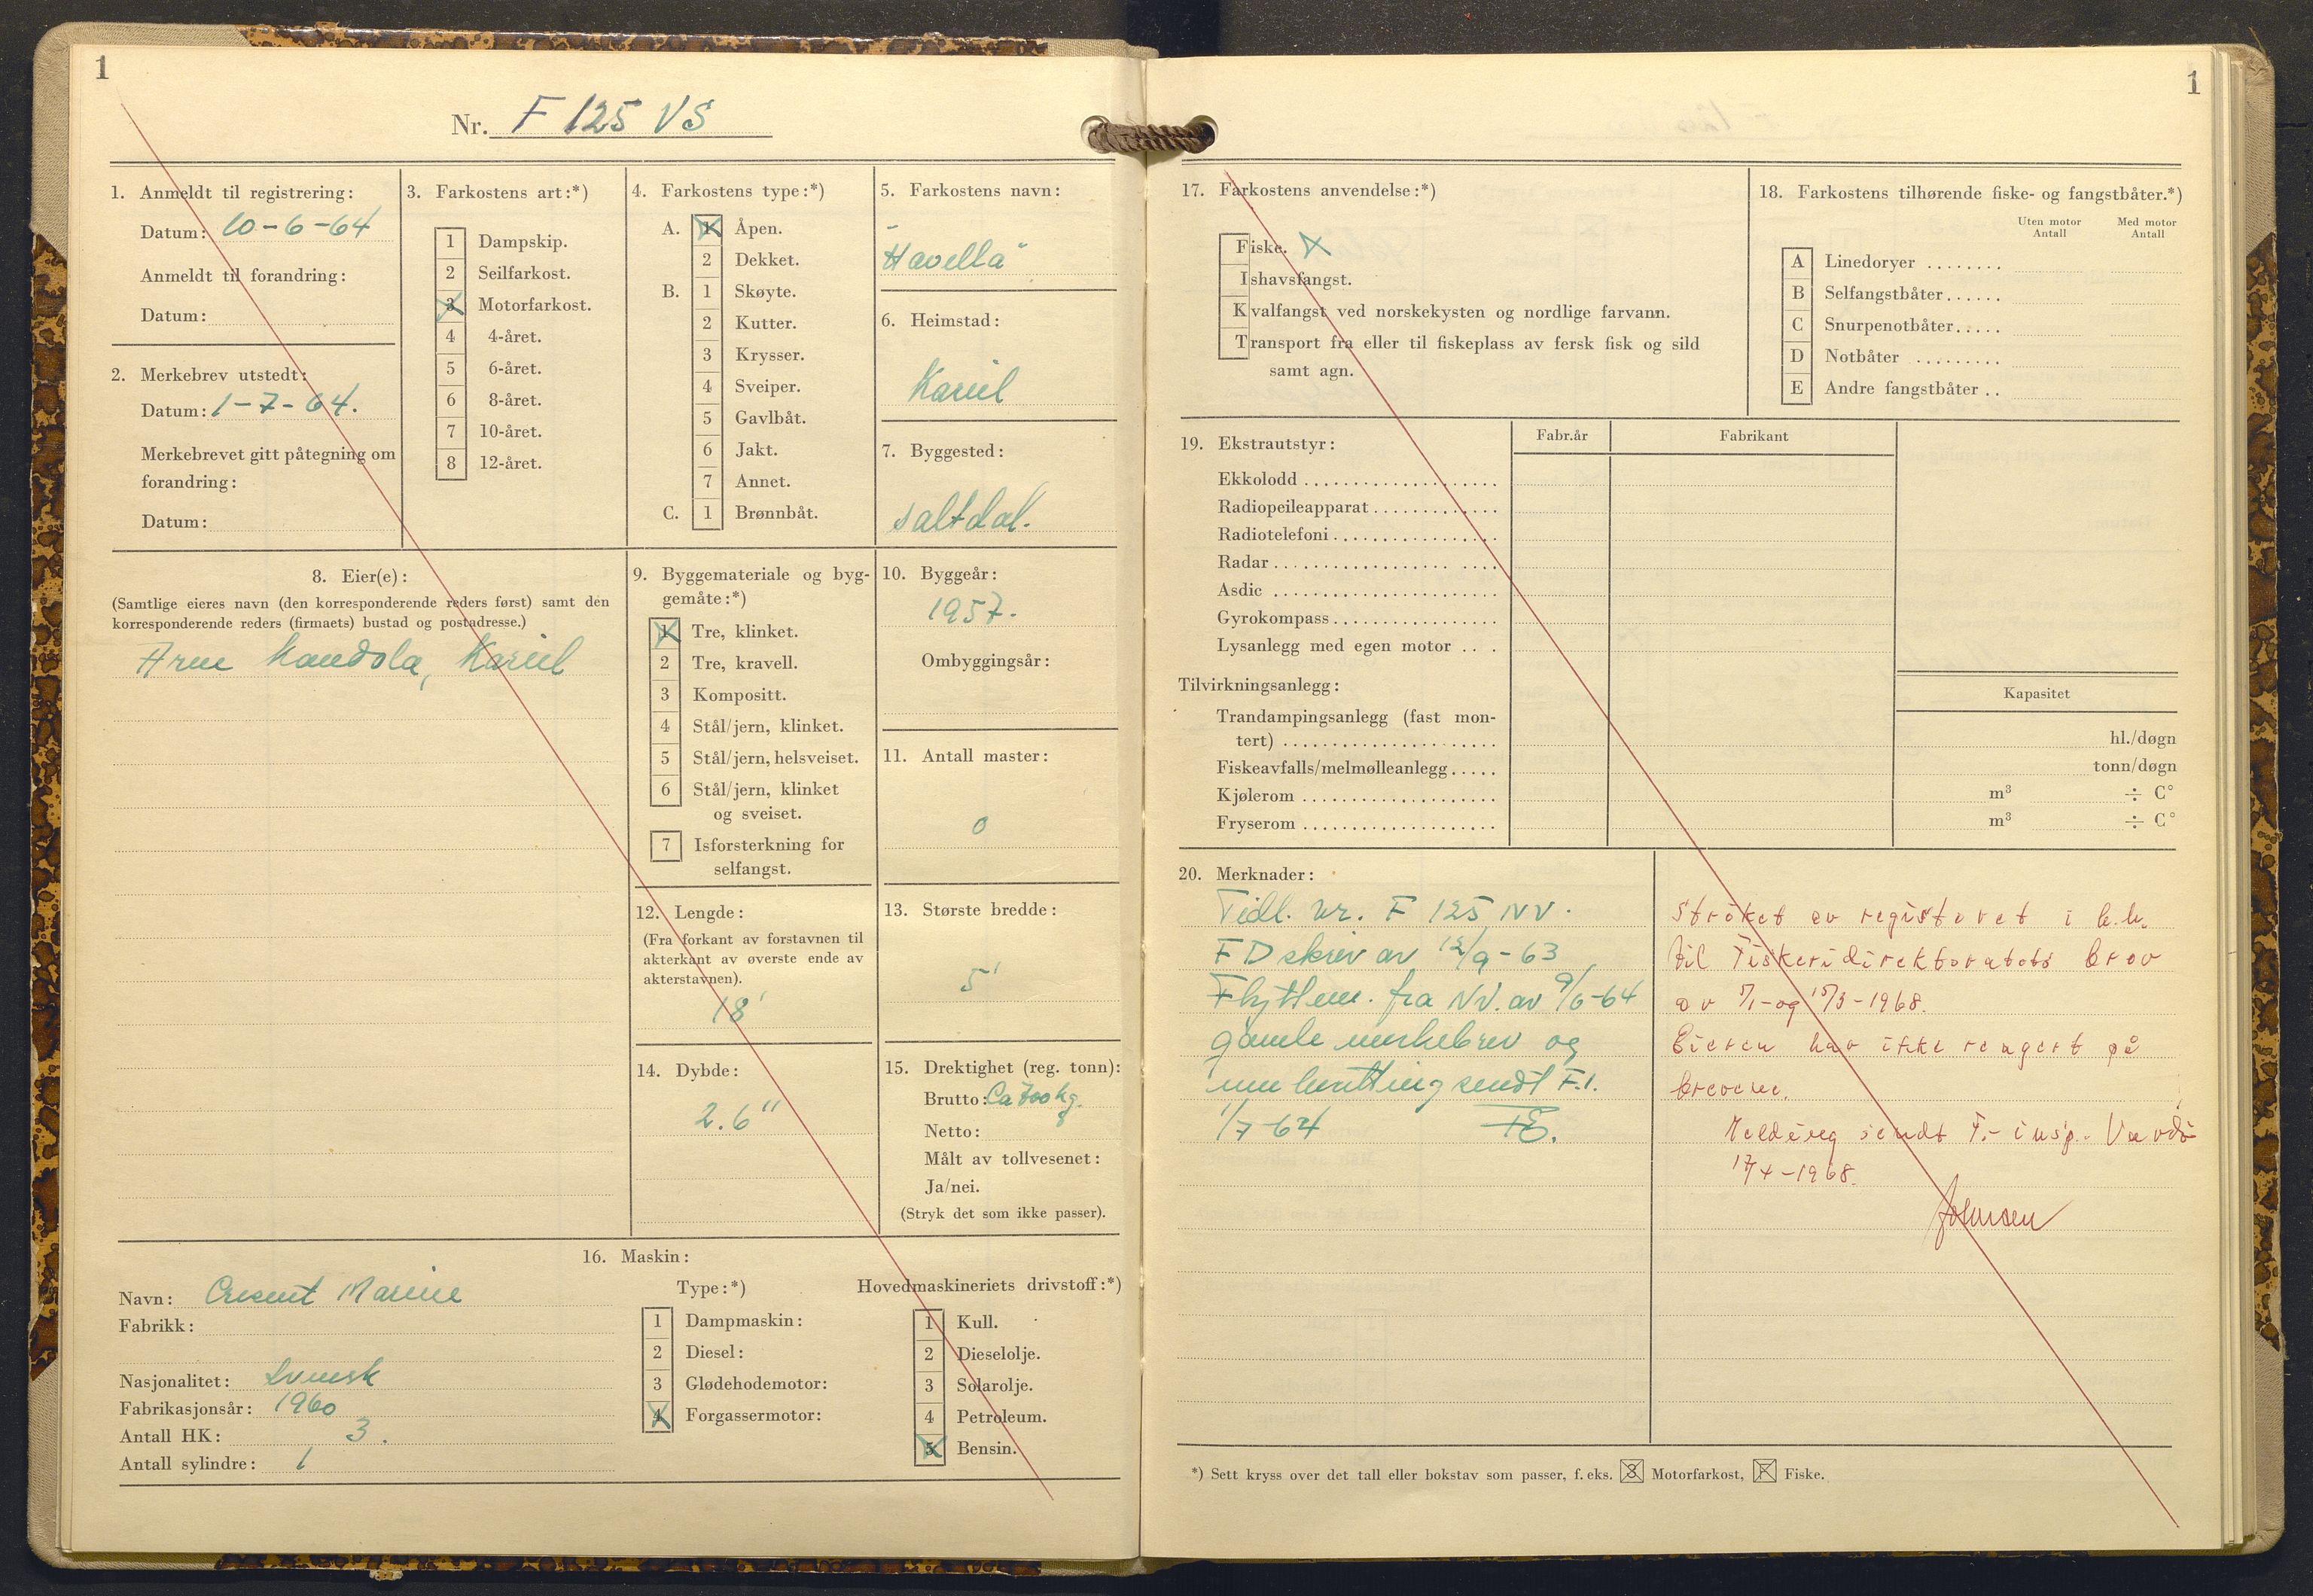 1
Nr. F 125 VS
1. Anmeldt til registrering:
Datum: 10-6-64
Anmeldt til forandring:
Datum:
2. Merkebrev utstedt:
Datum: 1-7-64.
Merkebrevet gitt påtegning om
forandring:
Datum:
3. Farkostens art:*)
1 Dampskip.
2 Seilfarkost.
3 Motorfarkost.
4 4-året.
5 6-året.
6 8-året.
7 10-året.
8 12-året.
4. Farkostens type:*)
A. 1 Åpen.
2 Dekket.
B. 1 Skøyte.
2 Kutter.
3 Krysser.
4 Sveiper.
5 Gavlbåt.
6 Jakt.
7 Annet.
C. 1 Brønnbåt.
5. Farkostens navn:
"Havella"
6. Heimstad:
Kariel
7. Byggested:
Saltdal.
8. Eier(e):
(Samtlige eieres navn (den korresponderende reders først) samt den
korresponderende reders (firmaets) bustad og postadresse.)
Arne Kandola, Kariel
9. Byggemateriale og byg-
gemåte:*)
1 Tre, klinket.
2 Tre, kravell.
3 Kompositt.
4 Stål/jern, klinket.
5 Stål/jern, helsveiset.
6 Stål/jern, klinket
og sveiset.
7 Isforsterkning for
selfangst.
10. Byggeår:
1957.
Ombyggingsår:
11. Antall master:
0
12. Lengde:
(Fra forkant av forstavnen til
akterkant av øverste ende av
akterstavnen).
18'
13. Største bredde:
5'
14. Dybde:
2.6"
15. Drektighet (reg. tonn):
Brutto: Ca 700 kg.
Netto:
Målt av tollvesenet:
Ja/nei.
(Stryk det som ikke passer).
16. Maskin:
Navn: Cresent Marine
Fabrikk:
Nasjonalitet: Svensk
Fabrikasjonsår: 1960
Antall HK: 3.
Antall sylindre: 1
Type:*)
1 Dampmaskin:
2 Diesel:
3 Glødehodemotor:
4 Forgassermotor:
Hovedmaskineriets drivstoff:*)
1 Kull.
2 Dieselolje.
3 Solarolje.
4 Petroleum.
5 Bensin.
1
17. Farkostens anvendelse:*)
Fiske. X
Ishavsfangst.
Kvalfangst ved norskekysten og nordlige farvann.
Transport fra eller til fiskeplass av fersk fisk og sild
samt agn.
18. Farkostens tilhørende fiske- og fangstbåter.*)
Uten motor Med motor
Antall Antall
A Linedoryer ........
B Selfangstbåter......
C Snurpenotbåter.....
D Notbåter .........
E Andre fangstbåter ..
19. Ekstrautstyr: Fabr.år Fabrikant
Ekkolodd
Radiopeileapparat
Radiotelefoni
Radar
Asdic
Gyrokompass
Lysanlegg med egen motor
Tilvirkningsanlegg: Kapasitet
Trandampingsanlegg (fast mon-
tert) hl./døgn
Fiskeavfalls/melmølleanlegg..... tonn/døgn
Kjølerom m³ ÷ C°
Fryserom m³ ÷ C°
20. Merknader:
Tidl. nr. F 125 NV.
FD skriv av 12/9-63
Flyttem. fra NV. av 9/6-64
gamle merkebrev og
sendt F.I.
1/7-64
Strøket av registeret i h.h.
til Fiskeridirektoratets brev
av 5/1-og 15/3-1968.
Eieren har ikke reagert på
brevene.
Melding sendt F.-insp. Vardø
17/4-1968.
Johnsen
*) Sett kryss over det tall eller bokstav som passer, f. eks. 3 Motorfarkost, F Fiske.